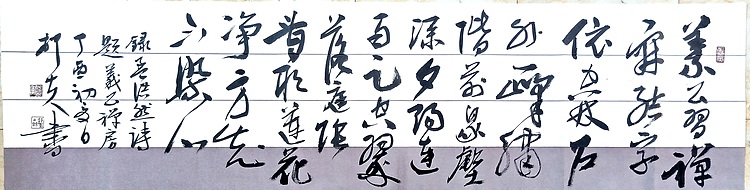 義公習禪
寂結宇
依空林戶
外一峰秀
階前眾壑
深夕陽連
雨足空翠
落庭陰
看取蓮花
淨方知
不染心
錄孟浩然詩
題義公禪房
丁酉初夏日
書